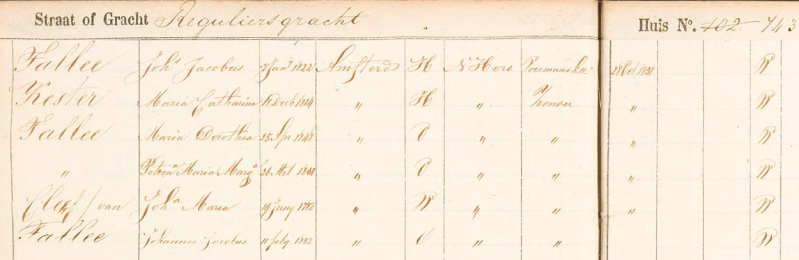 Straat of Gracht Reguliersgracht Huis No. 402 743
Fallee Johs Jacobus 7 Jan 1822 Amsterd H N Herv 28 Oct 1851 W
Kester Maria Catharina 1814 " H " " W
Fallee Maria Dorothea 25 Apr 1848 " O " " " W
" Petrona Maria Marga 26 1848 " O " " " W
Cleef / van Joha Maria 19 Juny 1782 " W " " " W
Fallee Johannes Jacobus 11 July 1852 " O " " W